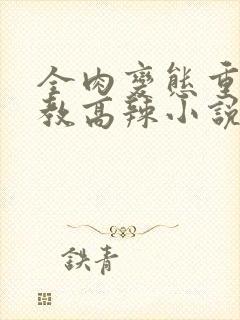 全肉變態重
教高辣小說
鉄青